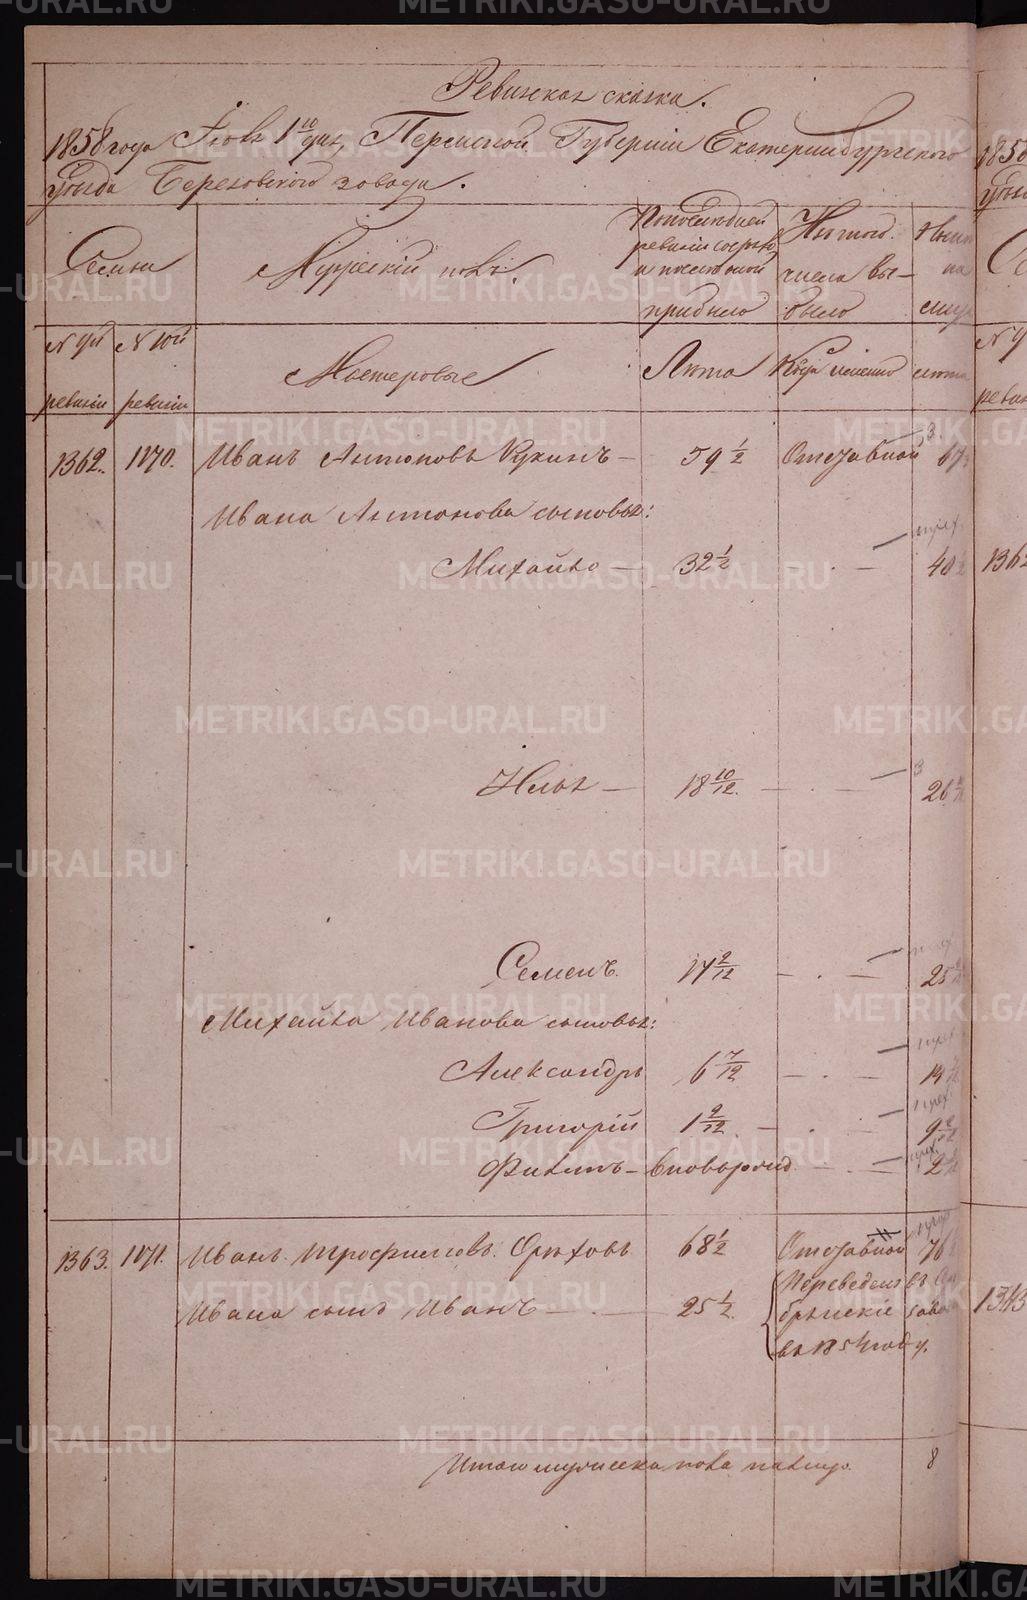 Ревизская сказка.
1858 года Іюня 1го дня, Пермской Губерніи Екатеринбургского
уѣзда Березовского завода.
Семьи
Мужескій полъ.
По последней ревизіи состояло и после оной прибыло
Изъ того числа выбыло
Ныне на лицо
№ 9й ревизіи
№ 10й ревизіи
Мастеровые
Лѣта
Когда именно
лѣта
1362. 1170. Иванъ Антоновъ Кукинъ — 59 1/2 Отставной 67
Ивана Антонова сыновья:
Михайло — 32 1/2 — . — 40
Илья — 18 10/12. — . — 26
Семенъ. 17 2/12 — . — 25
Михайла Иванова сыновья:
Александръ 6 7/12 — . — 14
Григорій 1 2/12. — . — 9 2/12
Филипъ — вновьрожд. — . — 2
1363. 1171. Иванъ Трофимовъ Орѣховъ 68 1/2 Отставной 76
Ивана сынъ Иванъ — . — 25 1/2. Переведенъ въ
въ 1854 году.
Итого мужеска пола налицо. 8
METRIKI.GASO-URAL.RU